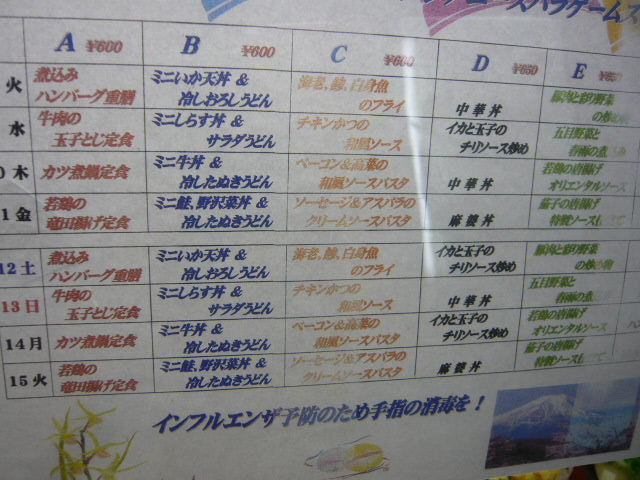 A ¥600 B ¥600 C ¥600 D ¥650 E
火 煮込み ミニいか天丼 & 海老、鯵、白身魚 豚肉と彩り野菜
ハンバーグ重膳 冷しおろしうどん のフライ 中華丼 の炒め物
水 牛肉の ミニしらす丼 & チキンかつの イカと玉子の 五目野菜と
玉子とじ定食 サラダうどん 和風ソース チリソース炒め 春雨の煮込み
木 カツ煮鍋定食 ミニ牛丼 & ベーコン&高菜の 若鶏の唐揚げ
冷したぬきうどん 和風ソースパスタ 中華丼 オリエンタルソース
金 若鶏の ミニ鮭、野沢菜丼 & ソーセージ&アスパラの 茄子の挟揚げ
竜田揚げ定食 冷したぬきうどん クリームソースパスタ 麻婆丼 特製ソース
12 土 煮込み ミニいか天丼 & 海老、鯵、白身魚 イカと玉子の 豚肉と彩り野菜
ハンバーグ重膳 冷しおろしうどん のフライ チリソース炒め の炒め物
13 日 牛肉の ミニしらす丼 & チキンかつの 五目野菜と
玉子とじ定食 サラダうどん 和風ソース 中華丼 春雨の煮
14 月 カツ煮鍋定食 ミニ牛丼 & ベーコン&高菜の イカと玉子の 若鶏の唐揚げ
冷したぬきうどん 和風ソースパスタ チリソース炒め オリエンタルソース
15 火 若鶏の ミニ鮭、野沢菜丼 & ソーセージ&アスパラの 茄子の挟揚げ
竜田揚げ定食 冷したぬきうどん クリームソースパスタ 麻婆丼 特製ソース
インフルエンザ予防のため手指の消毒を!